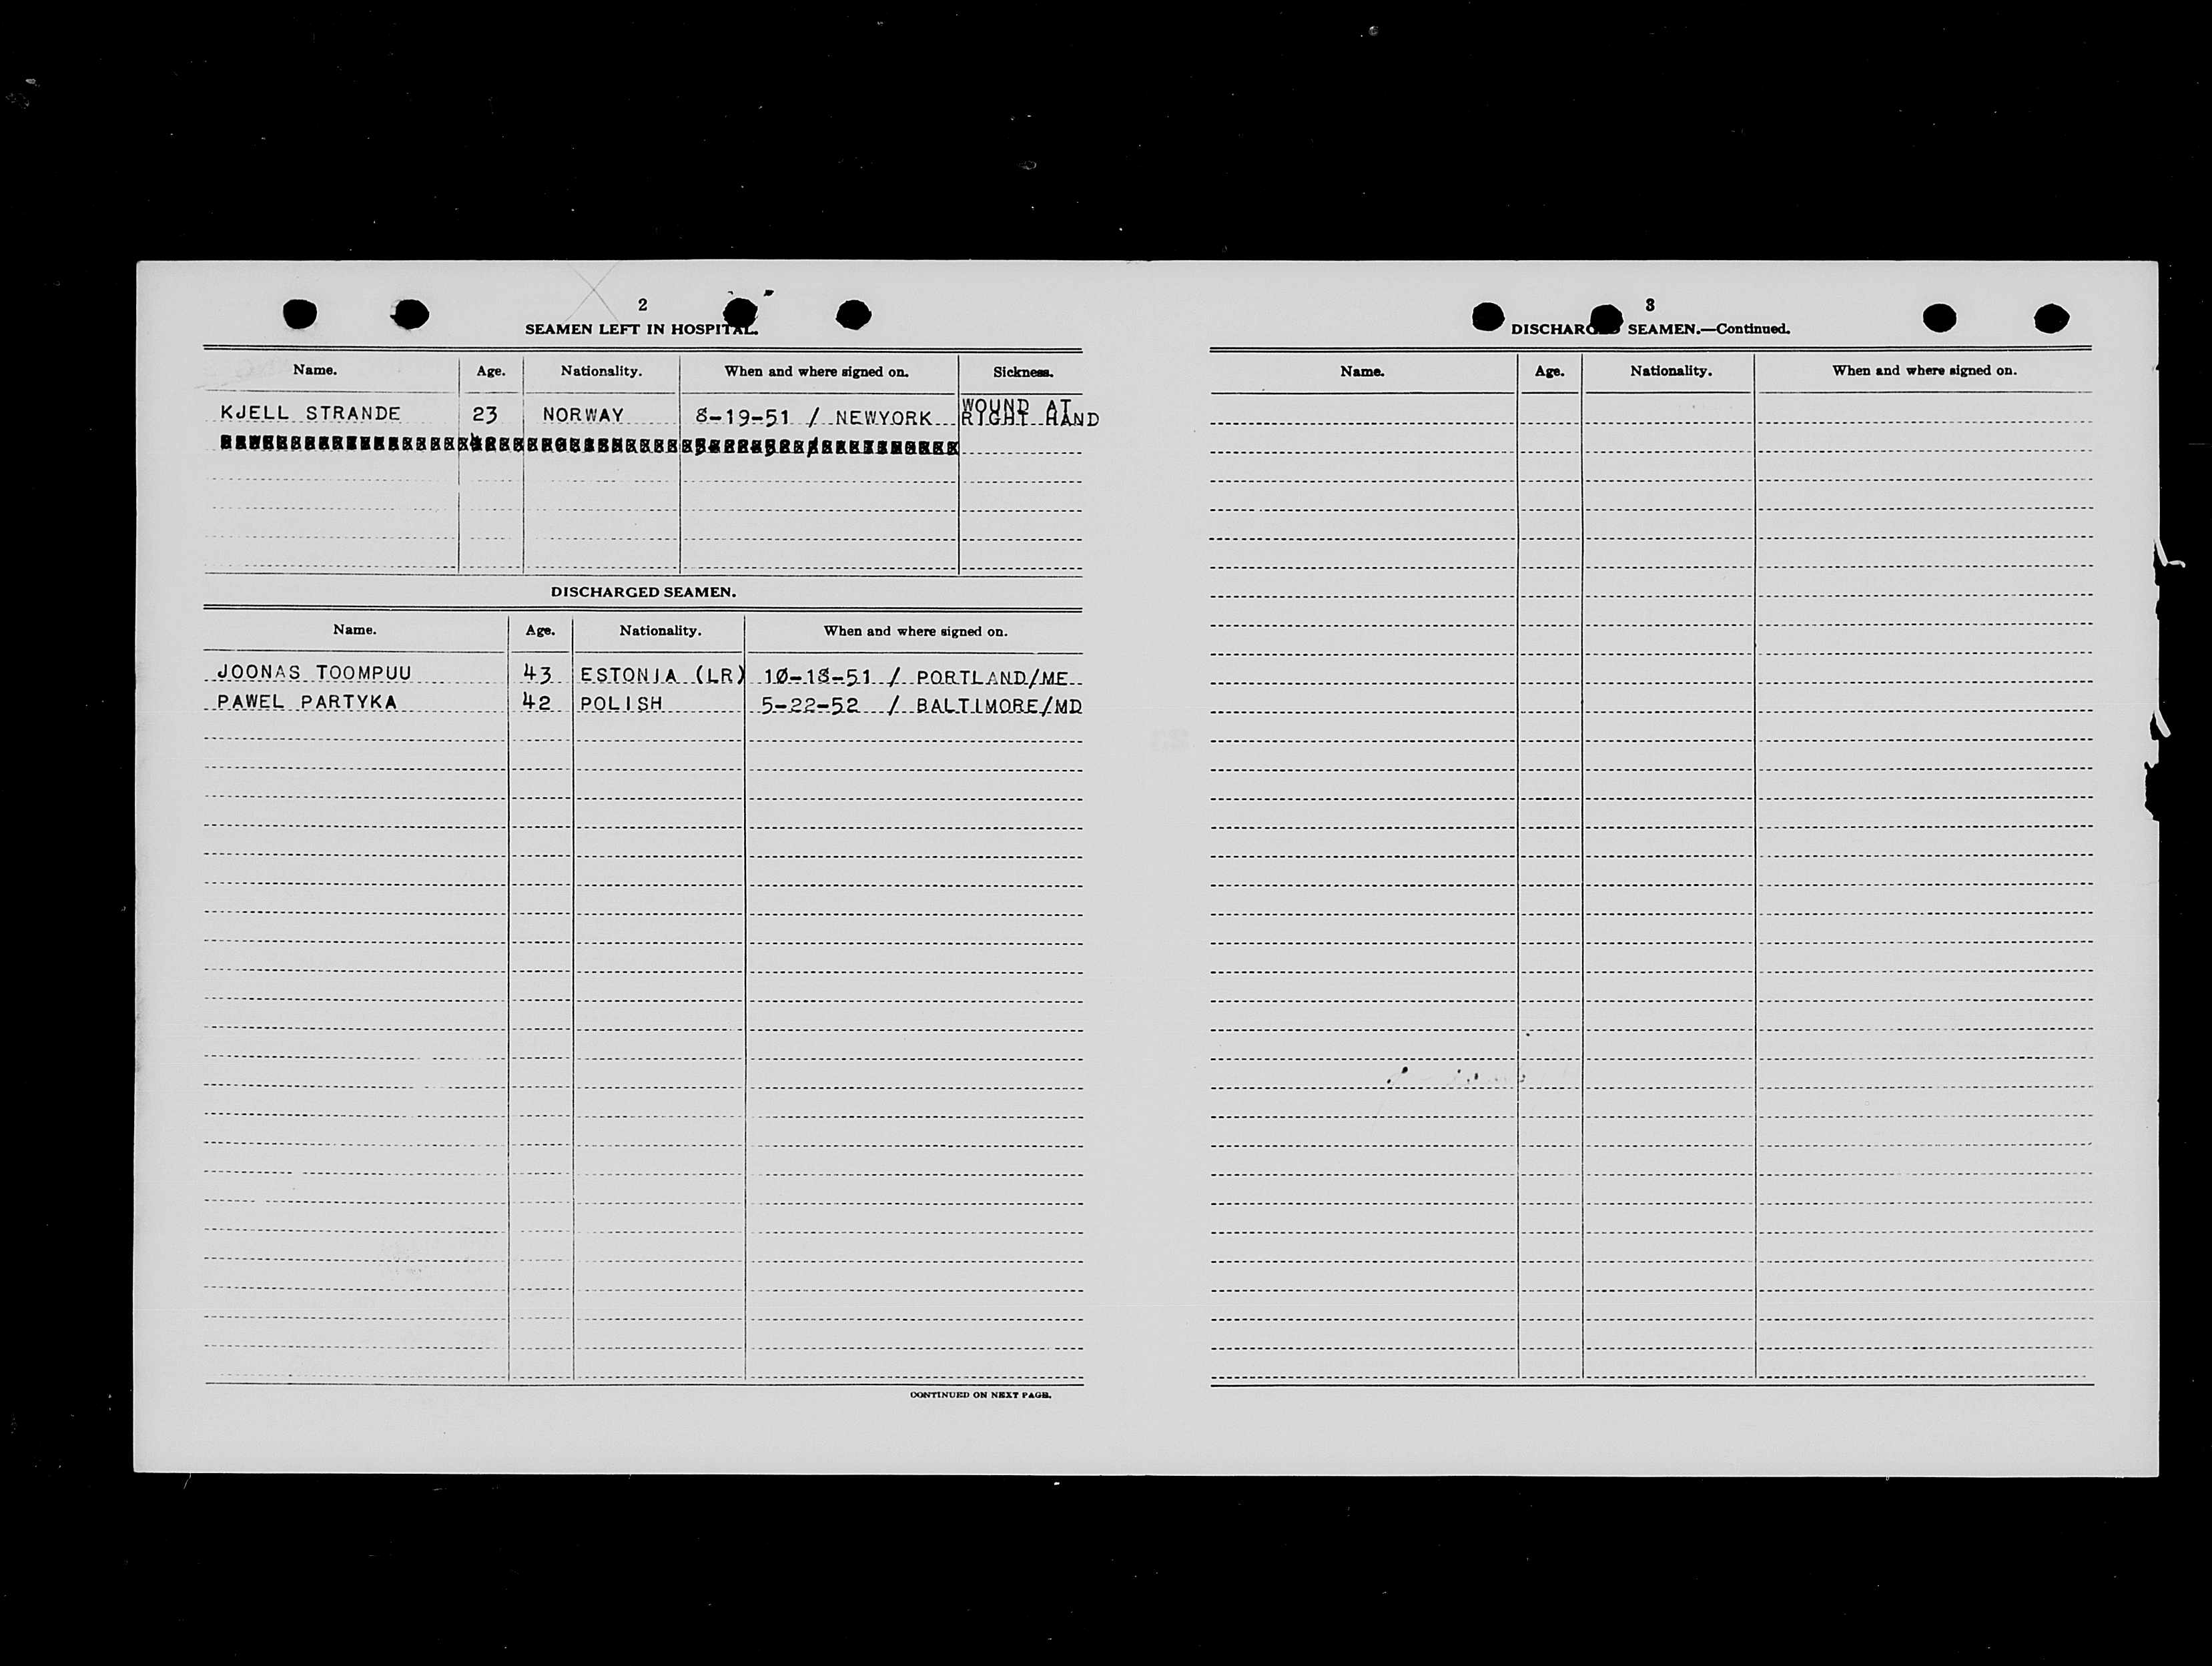 2
SEAMEN LEFT IN HOSPITAL.
Name. Age. Nationality. When and where signed on. Sickness.
KJELL STRANDE 23 NORWAY 8-19-51 / NEWYORK WOUND AT
RIGHT HAND
DISCHARGED SEAMEN.
Name. Age. Nationality. When and where signed on.
JOONAS TOOMPUU 43 ESTONIA (LR) 10-18-51 / PORTLAND/ME
PAWEL PARTYKA 42 POLISH 5-22-52 / BALTIMORE/MD
CONTINUED ON NEXT PAGE.
3
DISCHARGED SEAMEN.—Continued.
Name. Age. Nationality. When and where signed on.